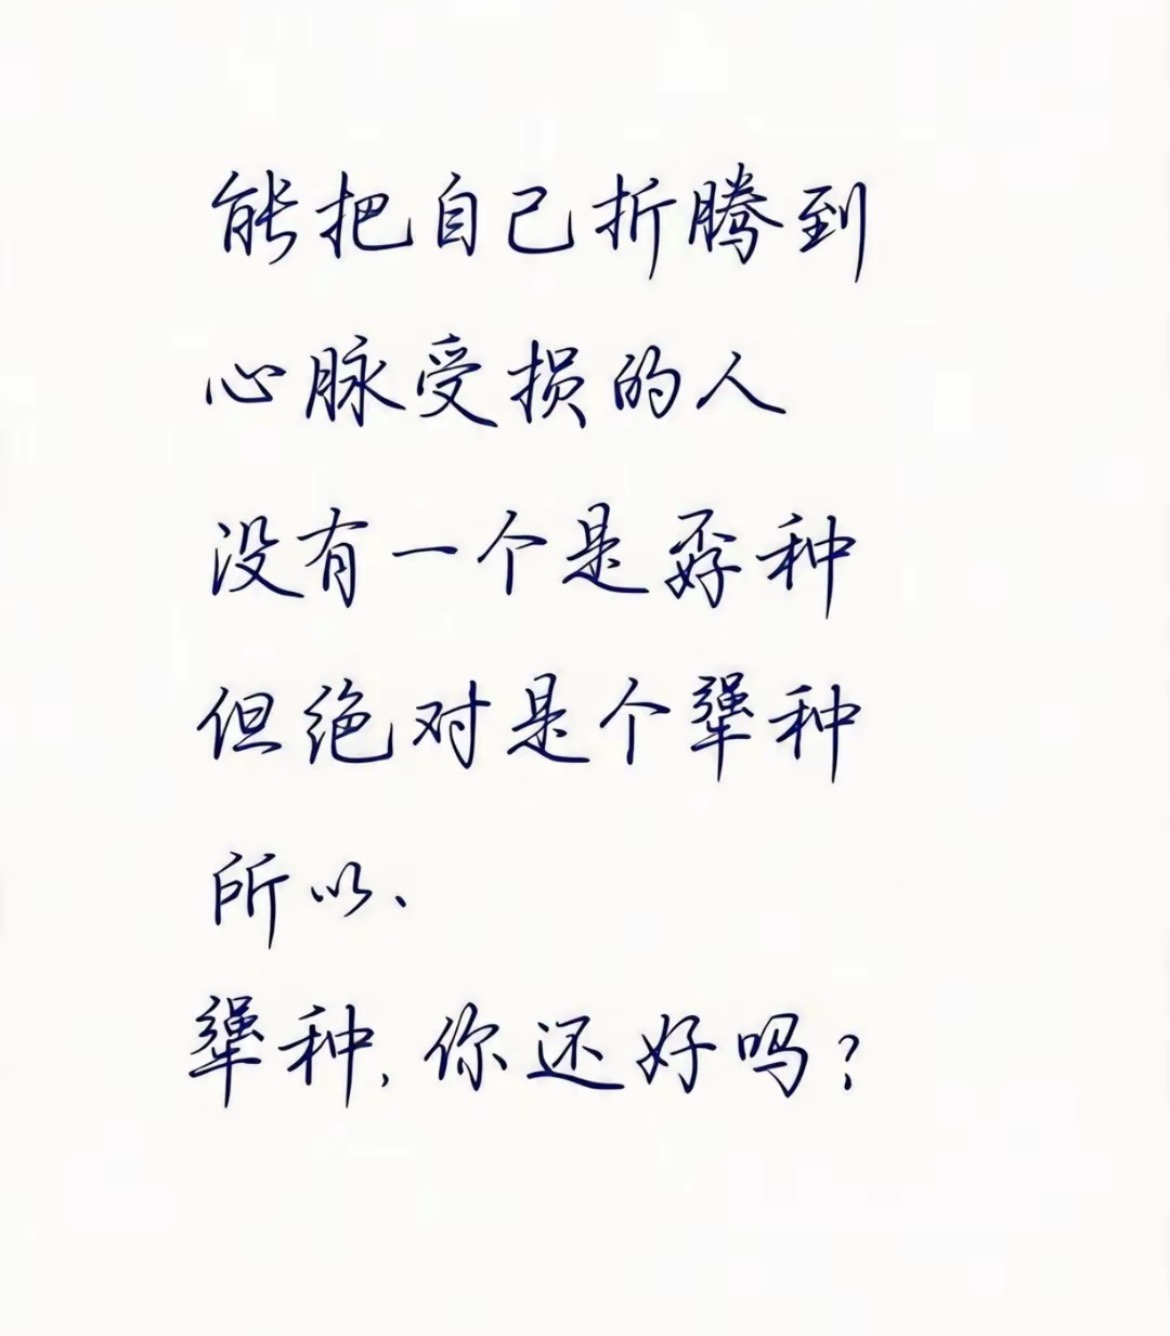 能把自己折腾到
心脉受损的人
没有一个是孬种
但绝对是个犟种
所以、
犟种，你还好吗？